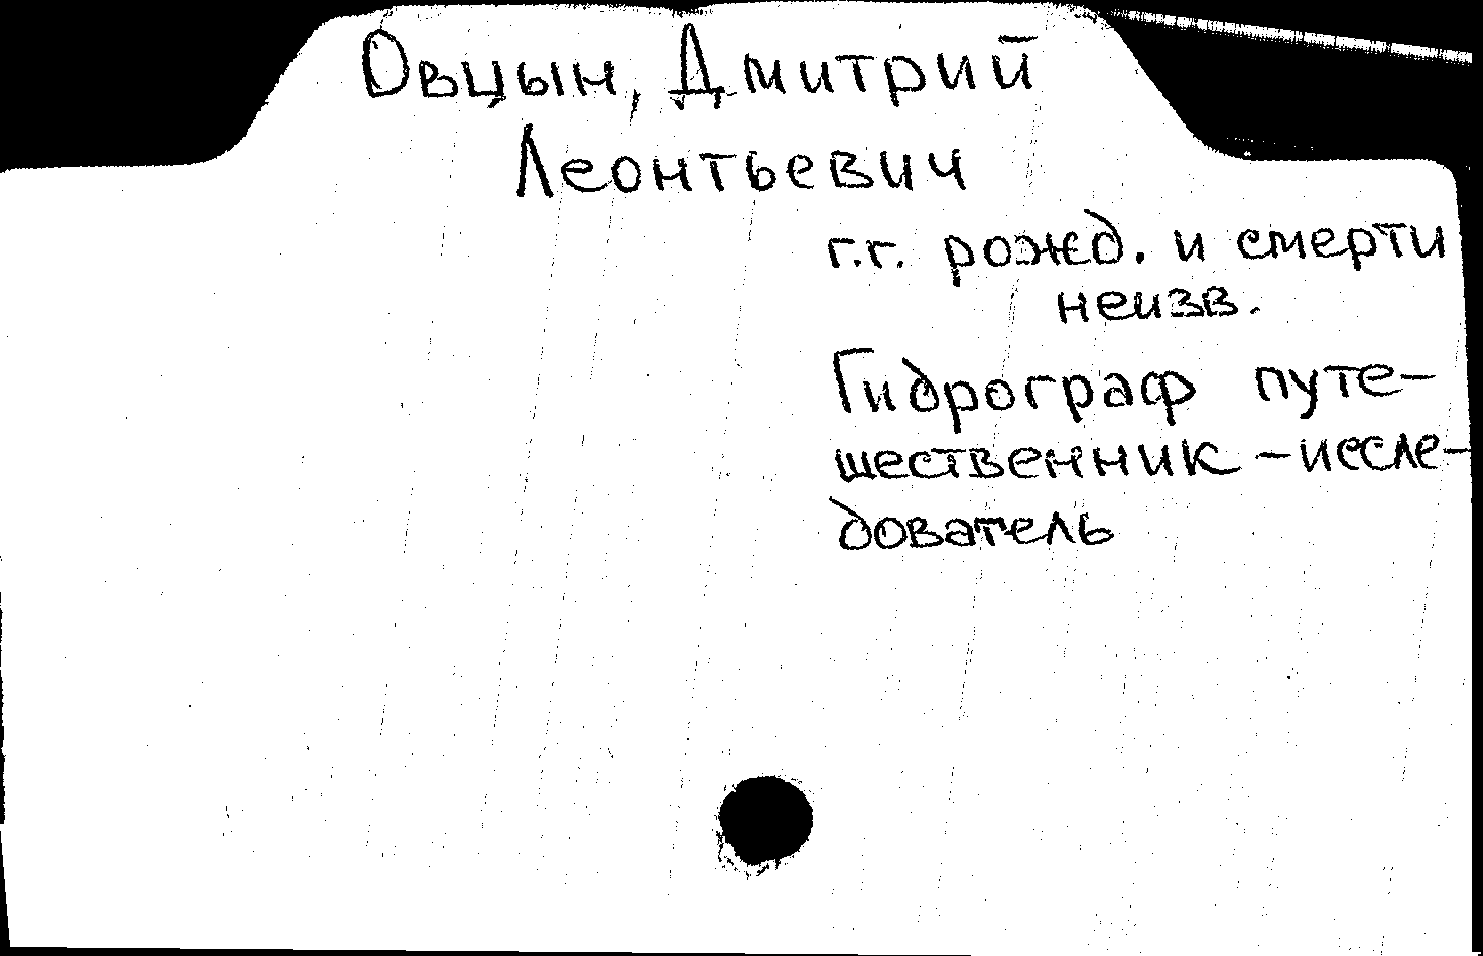 Овцын, Дмитрий
Леонтьевич
г.г. рожд. и смерти
неизв.
Гидрограф путе-
шественник - иссле-
дователь